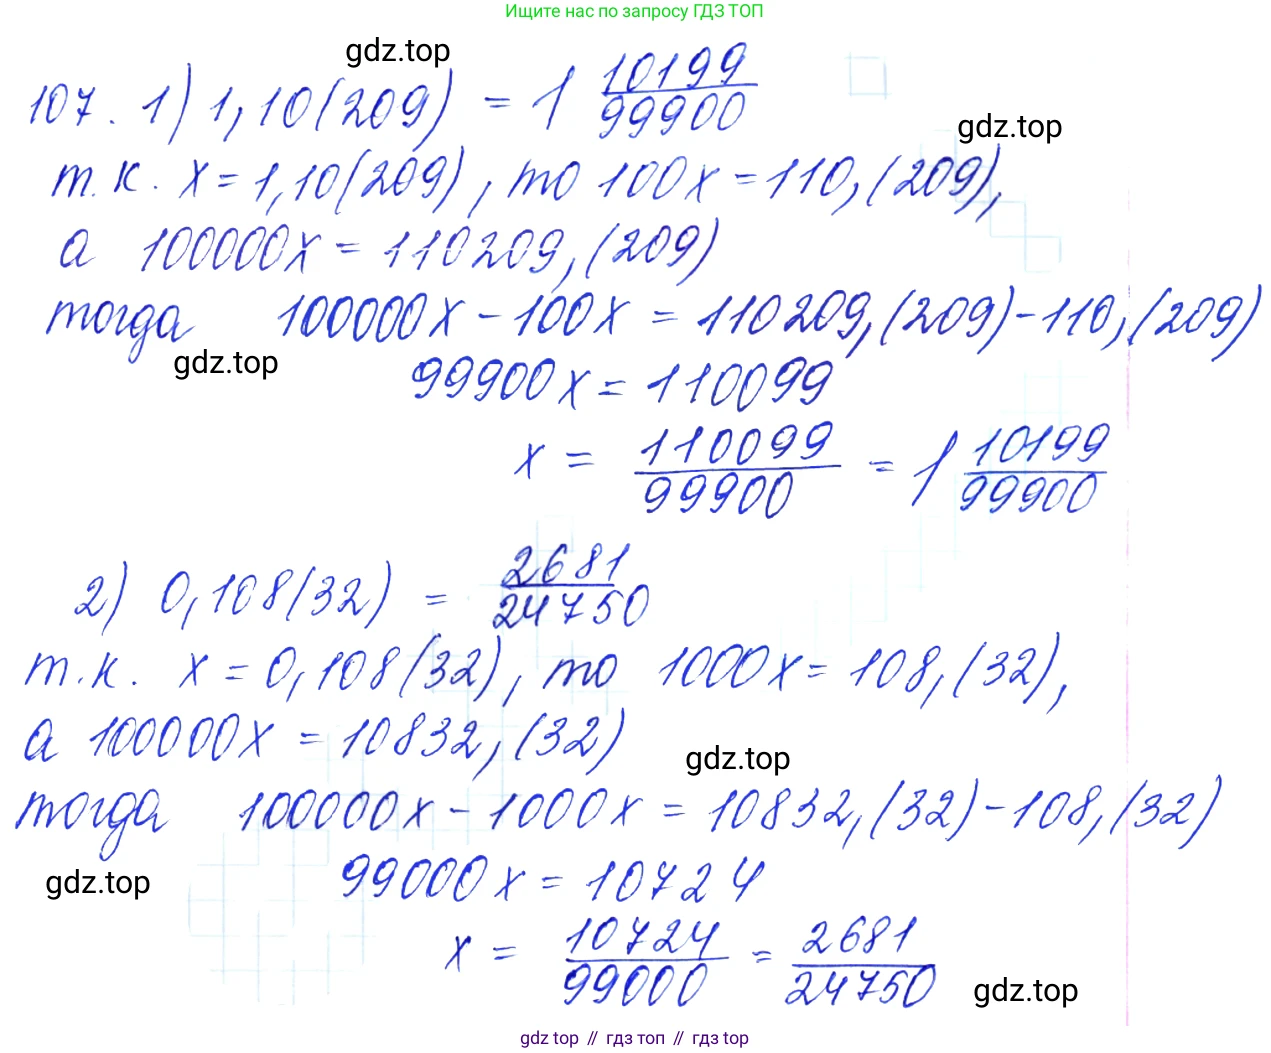 Ищите нас по запросу ГДЗ ТОП
gdz.top
107. 1) 1,10(209) = 1 10199/99900
gdz.top
т.к. x = 1,10(209), то 100x = 110,(209),
а 100000x = 110209,(209)
тогда 100000x - 100x = 110209,(209) - 110,(209)
gdz.top
99900x = 110099
x = 110099/99900 = 1 10199/99900
2) 0,108(32) = 2681/24750
т.к. x = 0,108(32), то 1000x = 108,(32),
а 100000x = 10832,(32)
gdz.top
тогда 100000x - 1000x = 10832,(32) - 108,(32)
gdz.top
99000x = 10724
x = 10724/99000 = 2681/24750
gdz.top
gdz top // гдз топ // gdz top